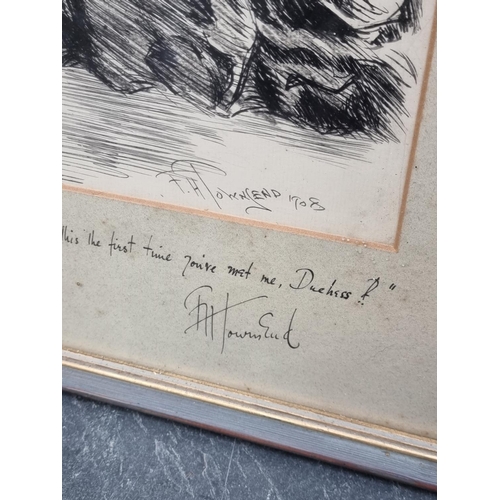 F. H. Townsend 1908
this the first time you've met me, Duchess?"
FH Townsend